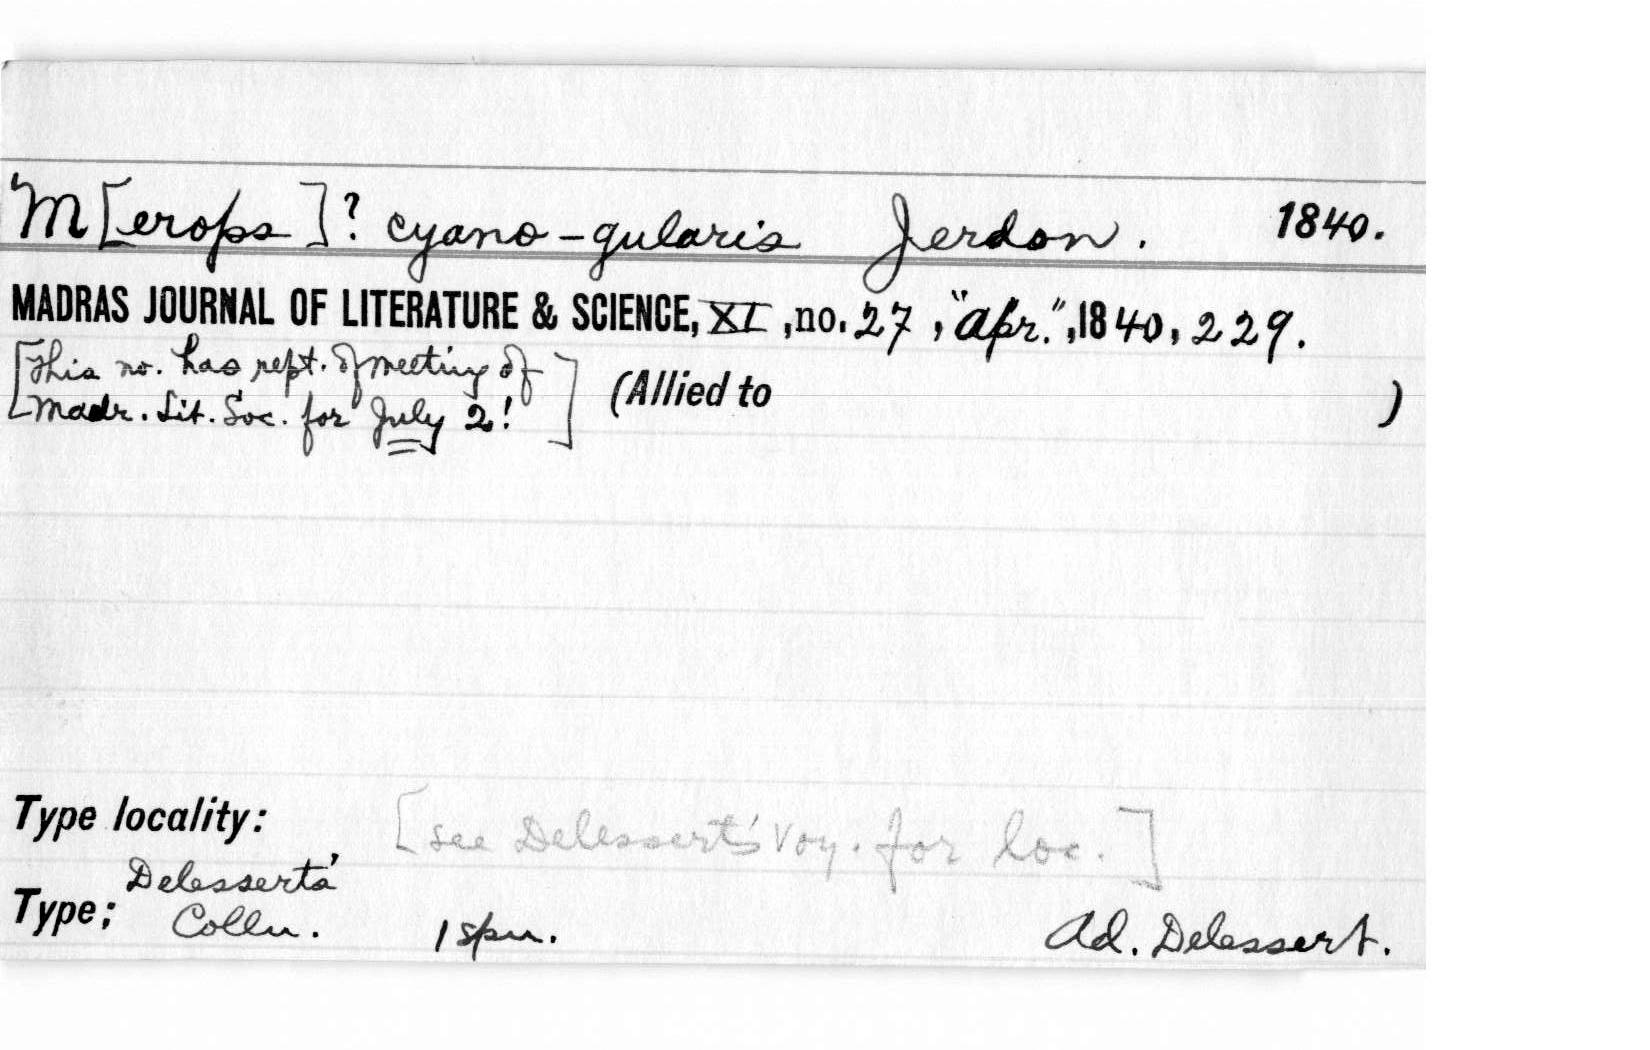 M[erops]? cyano-gularis Jerdon. 1840.
MADRAS JOURNAL OF LITERATURE & SCIENCE, XI, no. 27, "Apr.", 1840, 229.
[This no. has rept. of meeting of
Madr. Lit. Soc. for July 2!] (Allied to )
Type locality: [see Delessert's Voy. for loc.]
Delessert's
Type; Colln. 1 spn. Ad. Delessert.